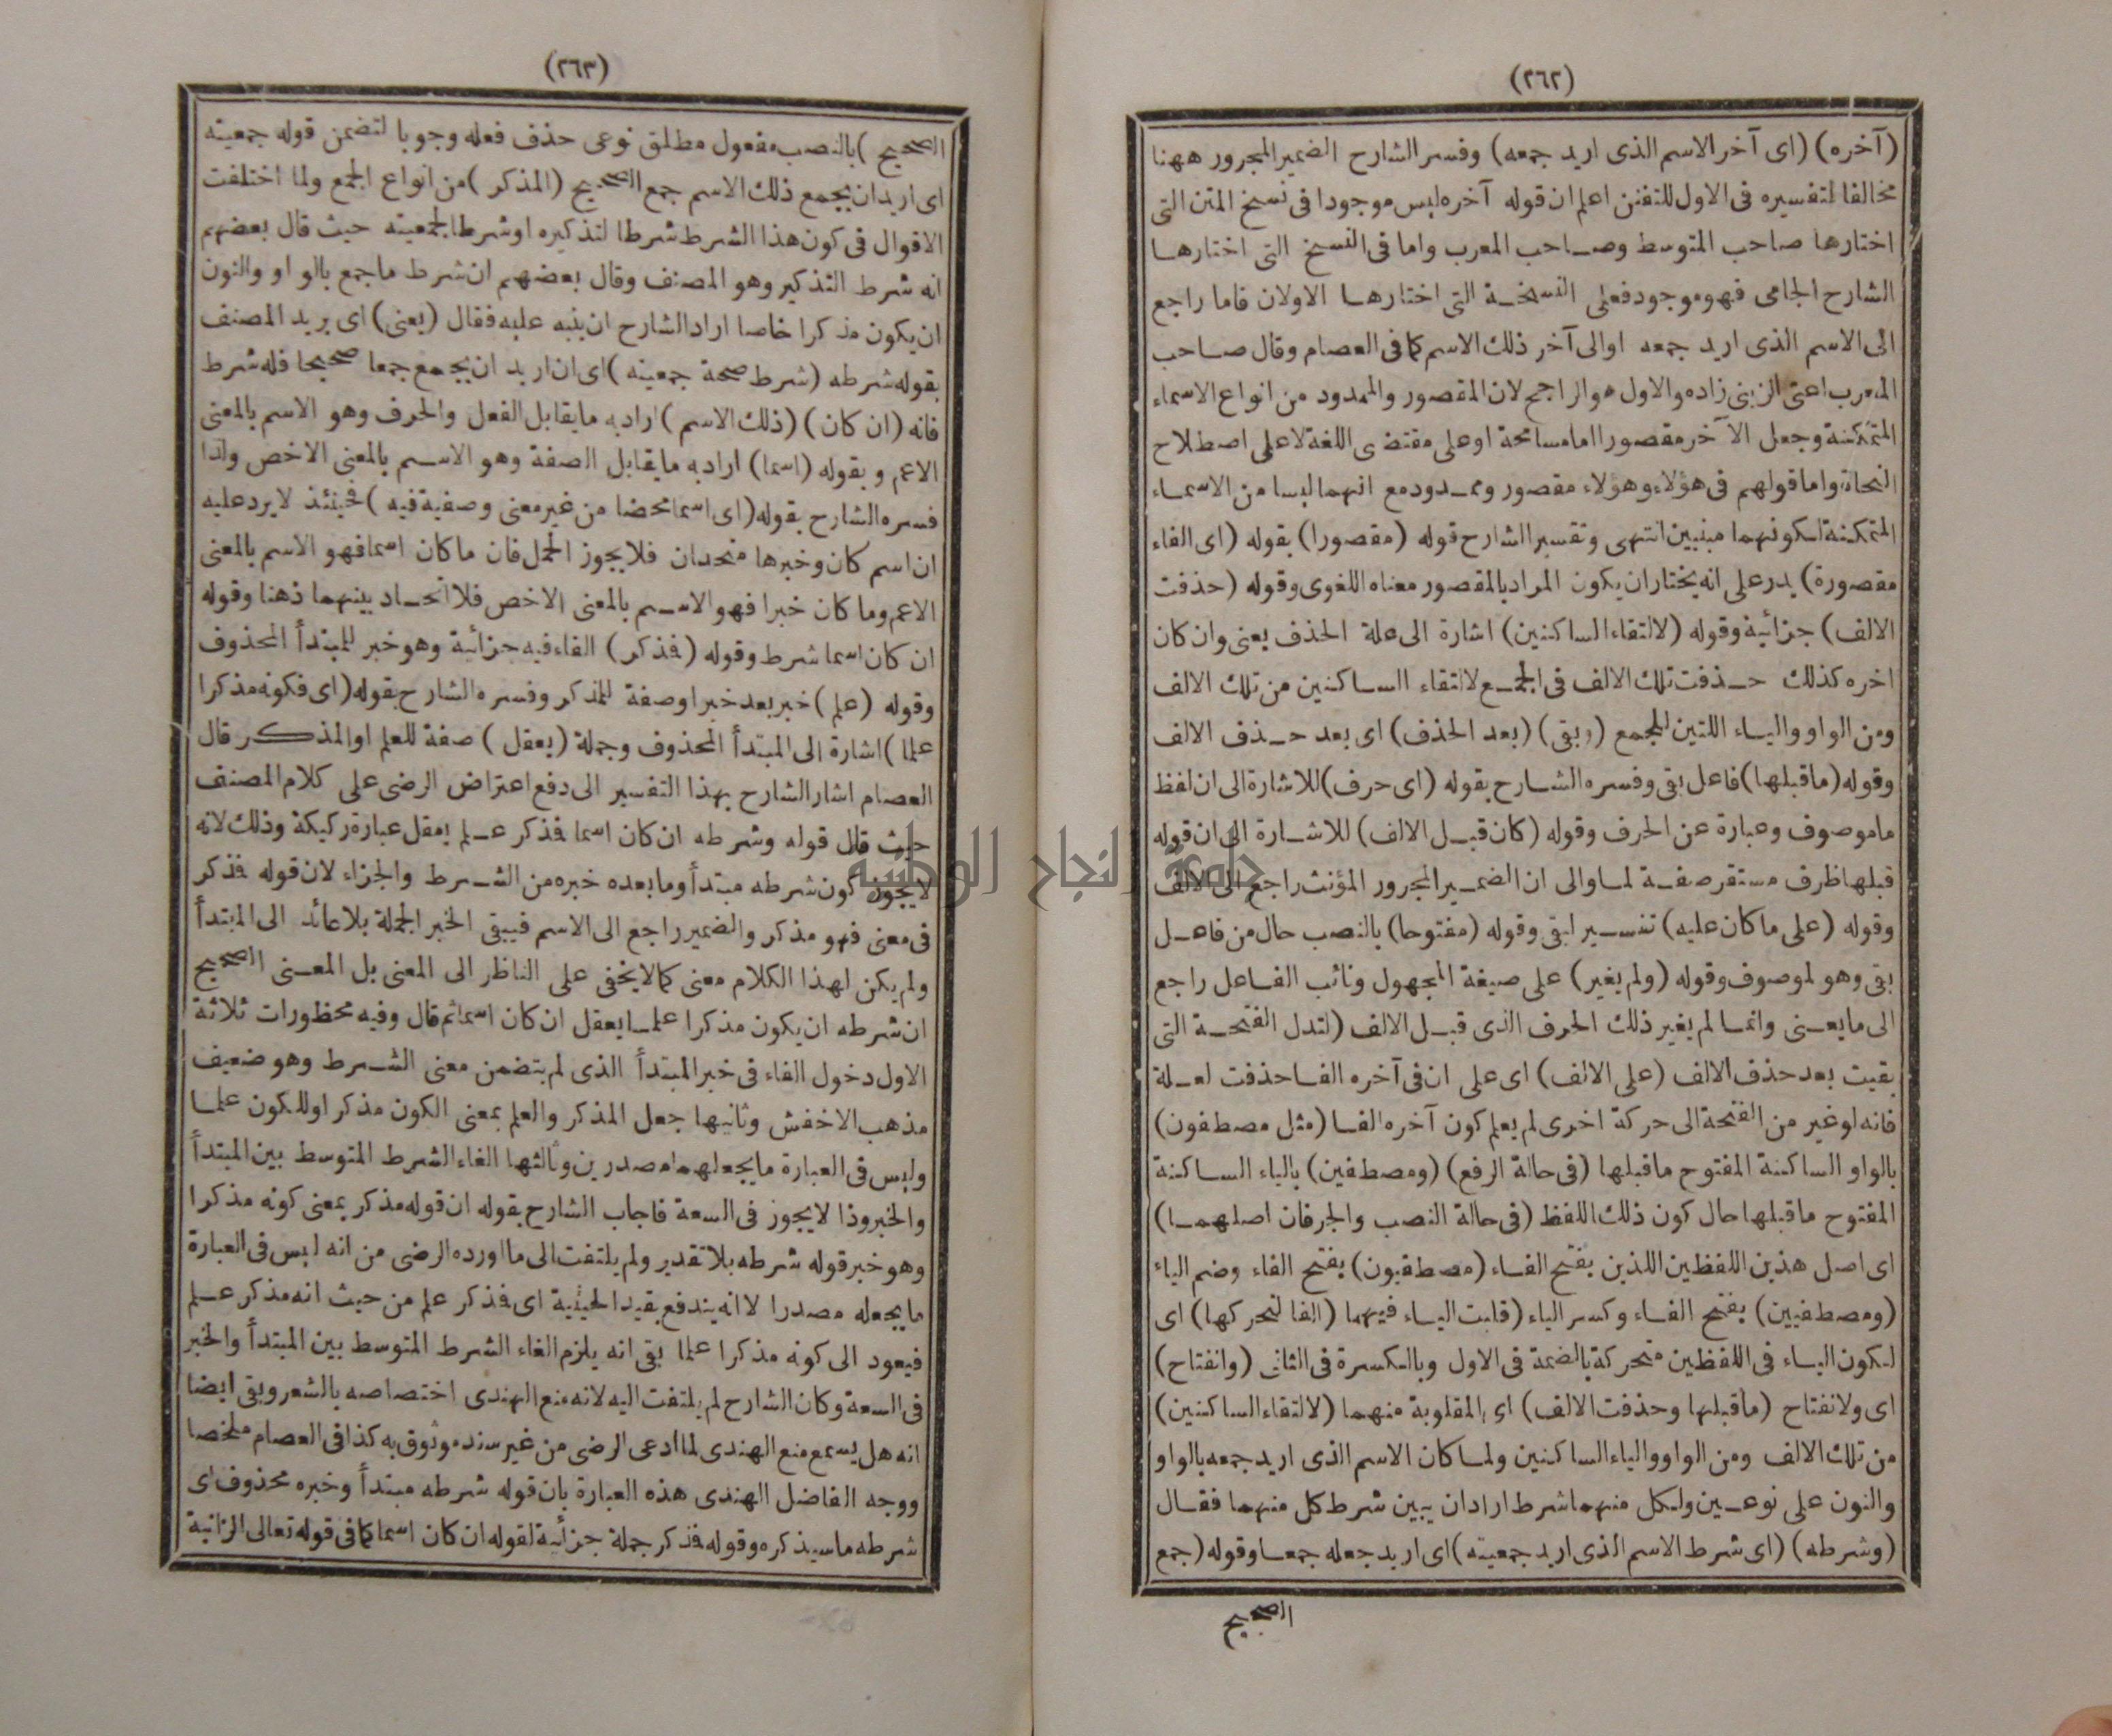 (٢٦٢)
(آخره) (اى آخر الاسم الذى اريد جمعه) وفسر الشارح الضمير المجرور ههنا
مخالفا لتفسيره فى الاول للتفنن اعلم ان قوله آخره ليس موجودا فى نسخ المتن التى
اختارها صاحب المتوسط وصاحب المعرب واما فى النسخ التى اختارها
الشارح الجامى فهو موجود فعلى النسخة التى اختارها الاولان فاما راجع
الى الاسم الذى اريد جمعه اوالى آخر ذلك الاسم كما فى العصام وقال صاحب
المعرب اعنى الزينى زاده والاول هو الراجح لان المقصور والممدود من انواع الاسماء
المتمكنة وجعل الآخر مقصورا اما مسامحة اوعلى مقتضى اللغة لا على اصطلاح
النحاة واما قولهم فى هؤلاء وهؤلاء مقصور وممدود مع انهما ليسا من الاسماء
المتمكنة لكونهما مبنيين انتهى وتفسير الشارح قوله (مقصورا) بقوله (اى الفاء
مقصورة) يدر على انه يختار ان يكون المراد بالمقصور معناه اللغوى وقوله (حذفت
الالف) جزائية وقوله (لالتقاء الساكنين) اشارة الى علة الحذف يعنى وان كان
اخره كذلك حذفت تلك الالف فى الجمع لالتقاء الساكنين من تلك الالف
ومن الواو والياء اللتين للجمع (وبقى) (بعد الحذف) اى بعد حذف الالف
وقوله (ما قبلها) فاعل بقى وفسره الشارح بقوله (اى حرف) للاشارة الى ان لفظ
ما موصوف وعبارة عن الحرف وقوله (كان قبل الالف) للاشارة الى ان قوله
قبلها ظرف مستقر صفة لما والى ان الضمير المجرور المؤنث راجع الى الالف
وقوله (على ما كان عليه) تفسير لبقى وقوله (مفتوحا) بالنصب حال من فاعل
بقى وهو لموصوف وقوله (ولم يغير) على صيغة المجهول ونائب الفاعل راجع
الى ما يعنى وانما لم يغير ذلك الحرف الذى قبل الالف (لتدل الفتحة التى
بقيت بعد حذف الالف (على الالف) اى على ان فى آخره الفا حذفت لعلة
فانه لوغير من الفتحة الى حركة اخرى لم يعلم كون آخره الفا (مثل مصطفون)
بالواو الساكنة المفتوح ما قبلها (فى حالة الرفع) (ومصطفين) بالياء الساكنة
المفتوح ما قبلها حال كون ذلك اللفظ (فى حالة النصب والجر فان اصلهما)
اى اصل هذين اللفظين اللذين بفتح الفاء (مصطفيون) بفتح الفاء وضم الياء
(ومصطفيين) بفتح الفاء وكسر الياء (قلبت الياء فيهما (الفا لتحركها) اى
لكون الياء فى اللفظين متحركة بالضمة فى الاول وبالكسرة فى الثانى (وانفتاح)
اى ولانفتاح (ما قبلها وحذفت الالف) اى المقلوبة منهما (لالتقاء الساكنين)
من تلك الالف ومن الواو والياء الساكنين ولما كان الاسم الذى اريد جمعه بالواو
والنون على نوعين ولكل منهما شرط اراد ان يبين شرط كل منهما فقال
(وشرطه) (اى شرط الاسم الذى اريد جمعيته) اى اريد جعله جمعا وقوله (جمع
الصحيح
(٢٦٣)
الصحيح) بالنصب مفعول مطلق نوعى حذف فعله وجوبا لتضمن قوله جمعيته
اى اريد ان يجمع ذلك الاسم جمع الصحيح (المذكر) من انواع الجمع ولما اختلفت
الاقوال فى كون هذا الشرط شرطا لتذكيره اوشرطا لجمعيته حيث قال بعضهم
انه شرط التذكير وهو المصنف وقال بعضهم ان شرط ما جمع بالواو والنون
ان يكون مذكرا خاصا اراد الشارح ان ينبه عليه فقال (يعنى) اى يريد المصنف
بقوله شرطه (شرط صحة جمعيته) اى ان اريد ان يجمع جمعا صحيحا فله شرط
فانه (ان كان) (ذلك الاسم) اراد به ما يقابل الفعل والحرف وهو الاسم بالمعنى
الاعم وبقوله (اسما) اراد به ما يقابل الصفة وهو الاسم بالمعنى الاخص ولذا
فسره الشارح بقوله (اى اسما محضا من غير معنى وصفية فيه) فحينئذ لا يرد عليه
ان اسم كان وخبرها متحدان فلا يجوز الحمل فان ما كان اسما فهو الاسم بالمعنى
الاعم وما كان خبرا فهو الاسم بالمعنى الاخص فلا اتحاد بينهما ذهنا وقوله
ان كان اسما شرط وقوله (فمذكر) الفاء فيه جزائية وهو خبر للمبتدأ المحذوف
وقوله (علم) خبر بعد خبر اوصفة للمذكر وفسره الشارح بقوله (اى فكونه مذكرا
علما) اشارة الى المبتدأ المحذوف وجملة (يعقل) صفة للعلم اوالمذكر قال
العصام اشار الشارح بهذا التفسير الى دفع اعتراض الرضى على كلام المصنف
حيث قال قوله وشرطه ان كان اسما فمذكر علم يعقل عبارة ركيكة وذلك لانه
لا يجوز كون شرطه مبتدأ وما بعده خبره من الشرط والجزاء لان قوله فمذكر
فى معنى فهو مذكر والضمير راجع الى الاسم فيبقى الخبر الجملة بلا عائد الى المبتدأ
ولم يكن لهذا الكلام معنى كما لا يخفى على الناظر الى المعنى بل المعنى الصحيح
ان شرطه ان يكون مذكرا علما يعقل ان كان اسما ثم قال وفيه محظورات ثلاثة
الاول دخول الفاء فى خبر المبتدأ الذى لم يتضمن معنى الشرط وهو ضعيف
مذهب الاخفش وثانيها جعل المذكر والعلم بمعنى الكون مذكرا وللكون علما
وليس فى العبارة ما يجعلهما مصدرين وثالثها الغاء الشرط المتوسط بين المبتدأ
والخبر وذا لا يجوز فى السعة فاجاب الشارح بقوله ان قوله مذكر بمعنى كونه مذكرا
وهو خبر قوله شرطه بلا تقدير ولم يلتفت الى ما اورده الرضى من انه ليس فى العبارة
ما يجعله مصدرا لانه يندفع بقيد الحيثية اى فمذكر علم من حيث انه مذكر علم
فيعود الى كونه مذكرا علما بقى انه يلزم الغاء الشرط المتوسط بين المبتدأ والخبر
فى السعة وكان الشارح لم يلتفت اليه لانه منع الهندى اختصاصه بالشعر وبقى ايضا
انه هل يسمع منع الهندى لما ادعى الرضى من غير سند موثوق به كذا فى العصام ملخصا
ووجه الفاضل الهندى هذه العبارة بان قوله شرطه مبتدأ وخبره محذوف اى
شرطه ما سيذكره وقوله فمذكر جملة جزائية لقوله ان كان اسما كما فى قوله تعالى الزانية
جامعة النجاح الوطنية